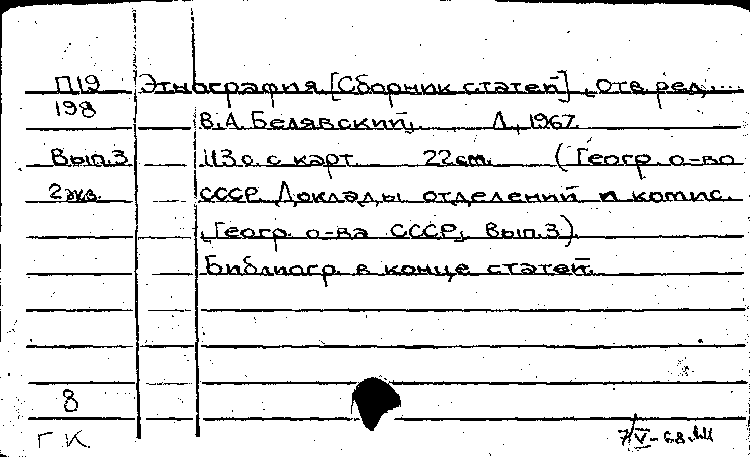 П19 Этнография [Сборник статей]. Отв. ред....
198 В.А. Белявский. Л., 1967.
Вып.3 113 с. с карт. 22 см. (Геогр. о-во
2 экз. СССР. Доклады отделений и комис.
Геогр. о-ва СССР, Вып.3).
Библиогр. в конце статей.
8
ГК 7/V-68